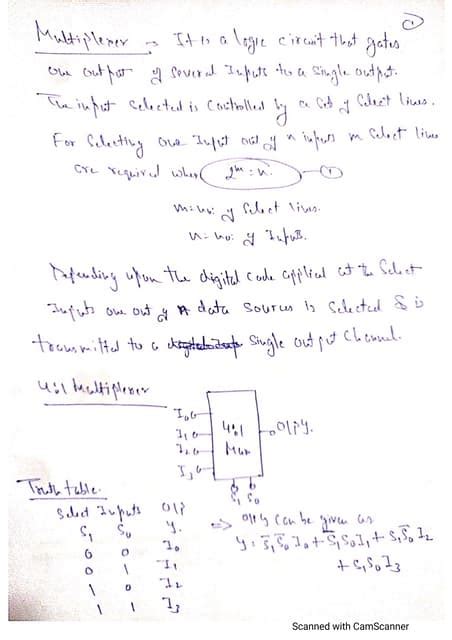 ①
Multiplexer → It is a logic circuit that gates
one output of several Inputs to a single output.
The input selected is controlled by a set of select lines.
For selecting one Input out of n inputs m select lines
are required when 2^m = n. —①
m = no: of select lines.
n = no: of Inputs.
Depending upon the digital code applied at the select
Inputs one out of n data sources is selected & is
transmitted to a single output channel.
4:1 Multiplexer
I0
I1
I2
I3
4:1
Mux
O/P Y.
S1 S0
Truth table.
Select Inputs O/P
S1 S0 Y.
0 0 I0
0 1 I1
1 0 I2
1 1 I3
⇒ O/P Y can be given as
Y = S̄1S̄0I0 + S̄1S0I1 + S1S̄0I2
+ S1S0I3
Scanned with CamScanner